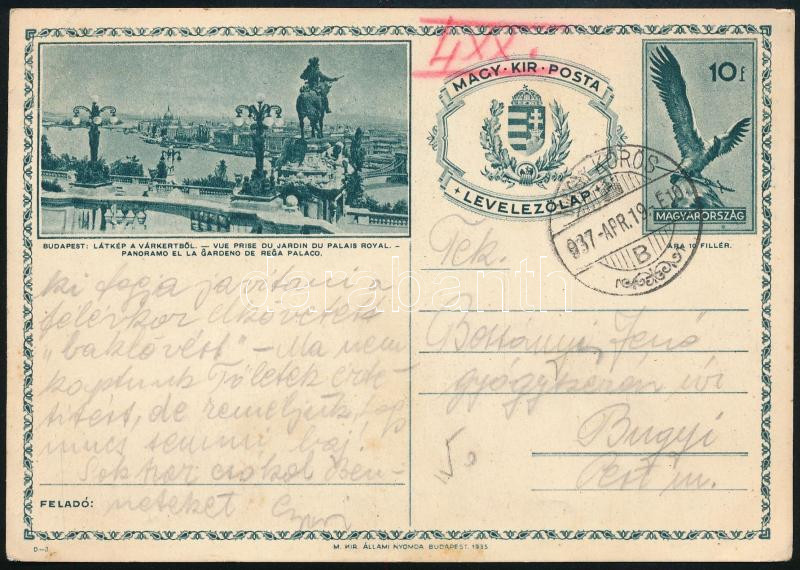 4XX.
MAGY · KIR · POSTA
LEVELEZŐLAP
10 f
MAGYARORSZÁG
ÁRA 10 FILLÉR.
KŐRÖS
937-APR.19
B
BUDAPEST: LÁTKÉP A VÁRKERTBŐL. — VUE PRISE DU JARDIN DU PALAIS ROYAL. –
PANORAMO EL LA ĜARDENO DE REĜA PALACO.
ki fogja javítani a
félévkor elkövetett
"baklövést" – Ma nem
kaptunk Tőletek érte-
sítést, de reméljük, h
nincs semmi baj!
Sokszor csókol Ben-
neteket
FELADÓ:
Tek.
Bottányi Jenő
gyógyszerész úr
Bugyi
Pest m.
darabanth
D—3
M. KIR. ÁLLAMI NYOMDA, BUDAPEST. 1935.